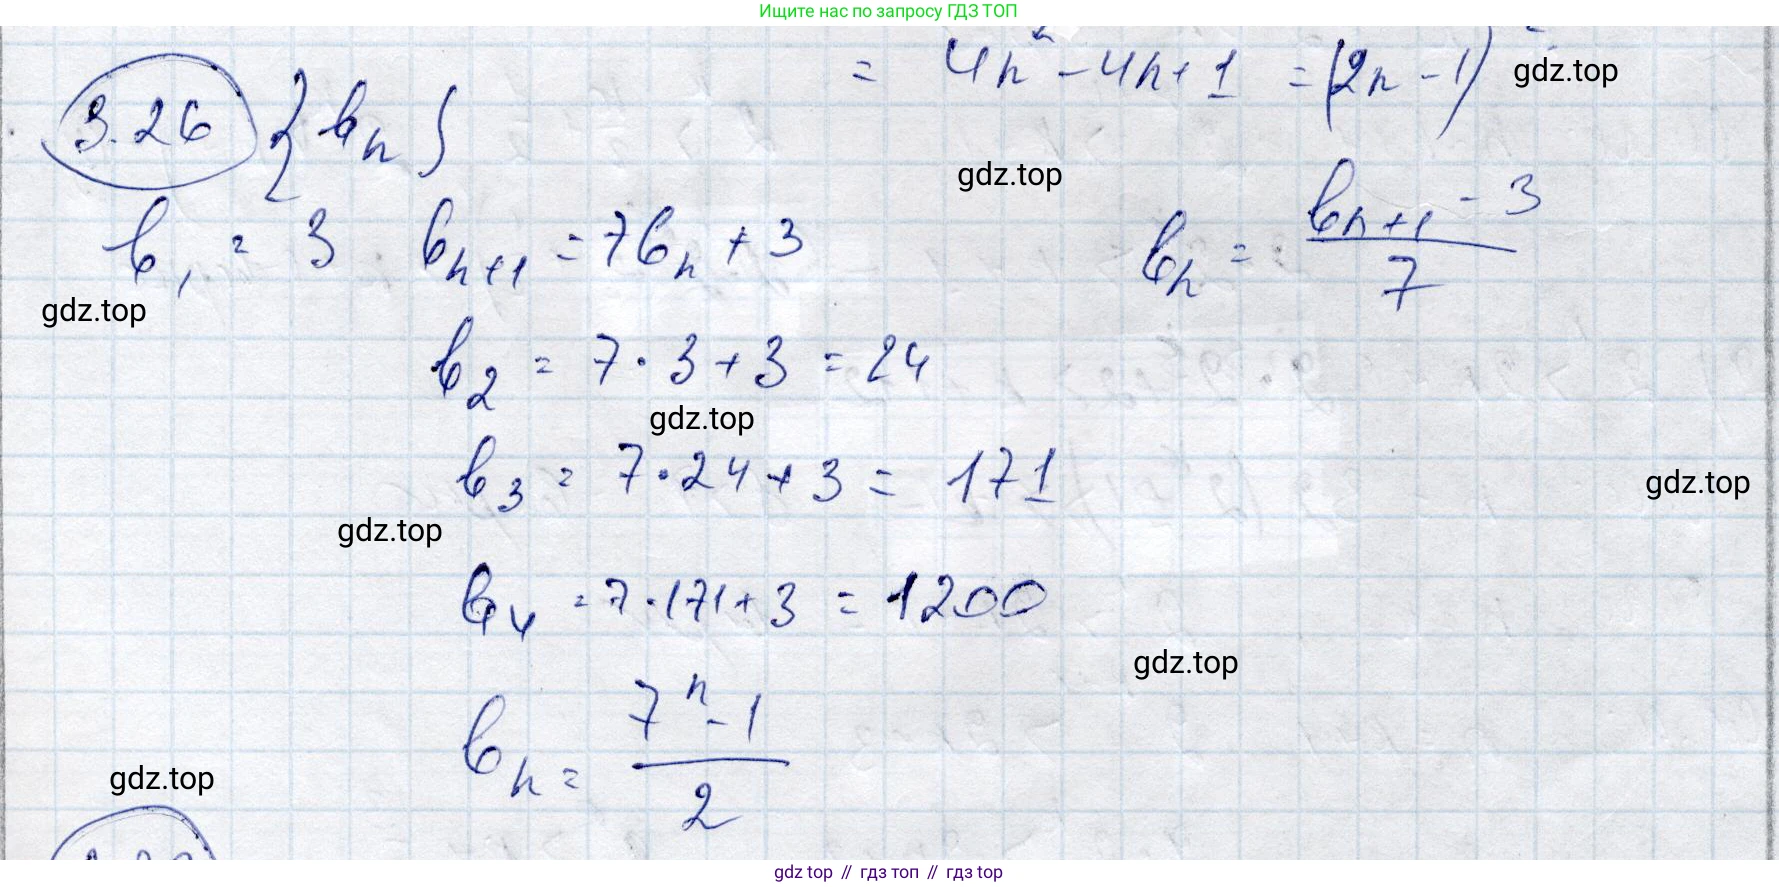 Ищите нас по запросу ГДЗ ТОП
= 4n² - 4n + 1 = (2n - 1)²
gdz.top
3.26 {bₙ}
gdz.top
b₁ = 3 bₙ₊₁ = 7bₙ + 3 bₙ = (bₙ₊₁ - 3)/7
gdz.top
b₂ = 7 · 3 + 3 = 24
gdz.top
b₃ = 7 · 24 + 3 = 171
gdz.top
gdz.top
b₄ = 7 · 171 + 3 = 1200
gdz.top
bₙ = (7ⁿ - 1)/2
gdz.top
gdz top // гдз топ // гдз top